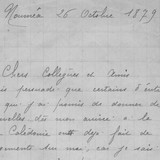 Nouméa 26 Octobre 1879
Chers Collègues et Amis
persuadé que certains d'entre
que j'ai promis de donner de
mon arrivée à la
Calédonie ont déjà fait de
sur moi, car je sais